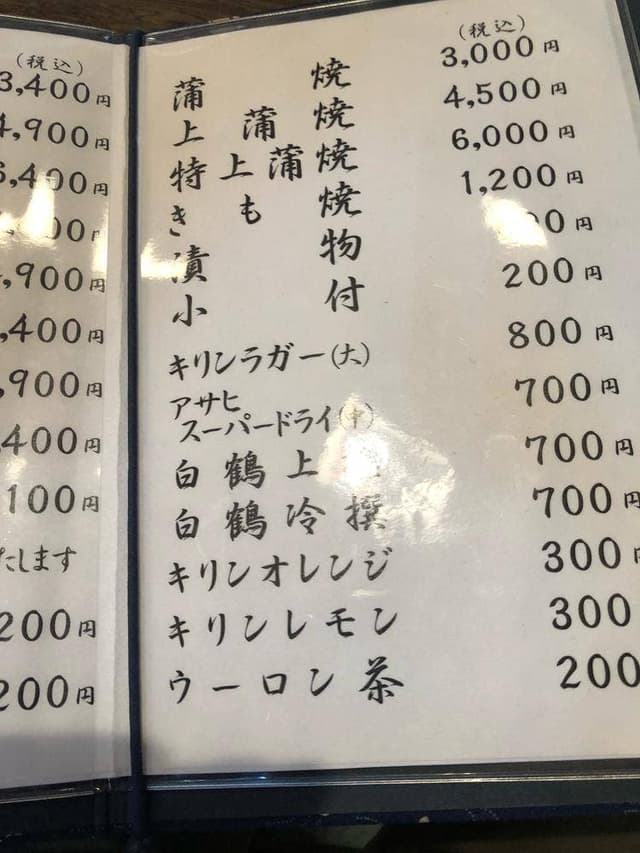 (税込)
3,400円
4,900円
6,400円
00円
,900円
,400円
,900円
400円
100円
たします
200円
200円
(税込)
蒲焼 3,000円
上蒲焼 4,500円
特上蒲焼 6,000円
きも焼 1,200円
漬物 00円
小付 200円
キリンラガー(大) 800円
アサヒ
スーパードライ(中) 700円
白鶴上 700円
白鶴冷撰 700円
キリンオレンジ 300円
キリンレモン 300
ウーロン茶 200